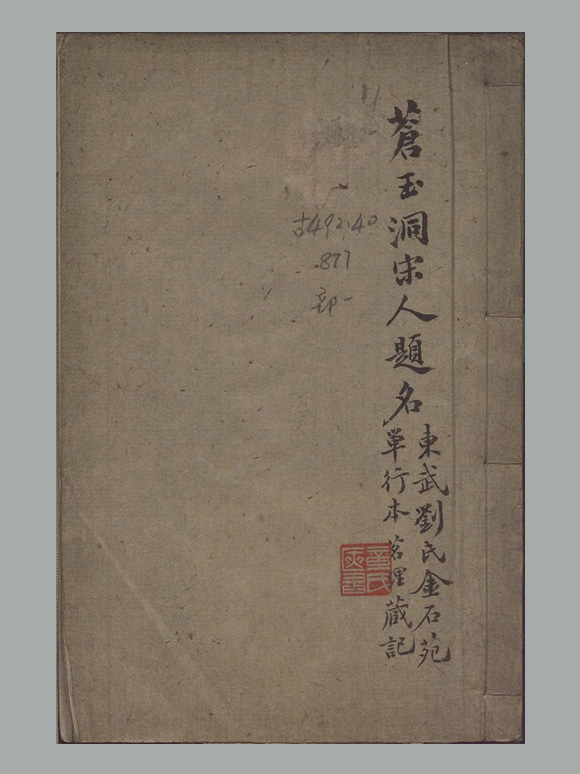 蒼玉洞宋人題名
東武劉氏金石苑
單行本 茗理藏記
古492.40
.877